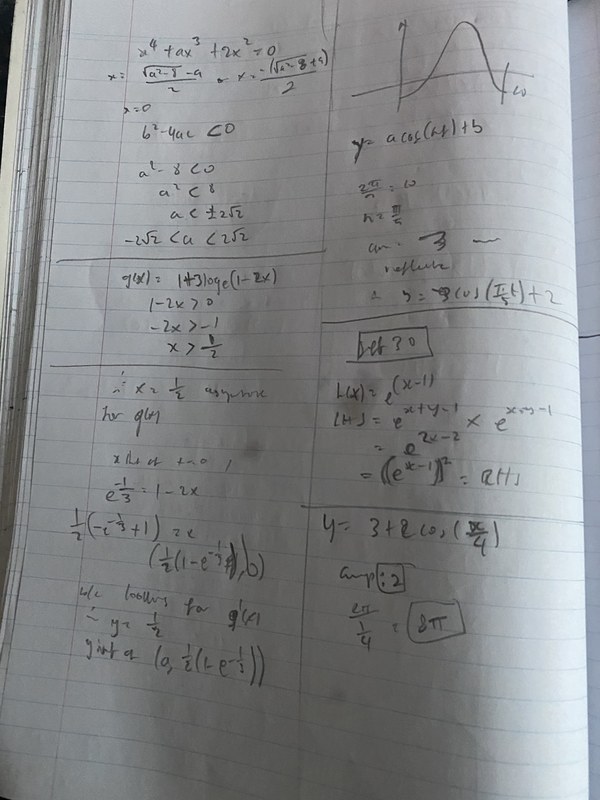 x⁴ + ax³ + 2x² = 0
x = (√(a²-8) - a)/2 or x = -(√(a²-8) + a)/2
x = 0
b² - 4ac < 0
a² - 8 < 0
a² < 8
a < ±2√2
-2√2 < a < 2√2
g(x) = 1+3loge(1-2x)
1-2x > 0
-2x > -1
x > 1/2
∴ x = 1/2
for g(x)
e^(-1/3) = 1-2x
1/2(-e^(-1/3)+1) = x
(1/2(1-e^(-1/3)), 0)
looking for g'(x)
∴ y = 1/2
y int a (0, 1/2(1-e^(-1/3)))
10
y = a cos(nt) + b
2π/n = 10
n = π/5
3
reflect
∴ y = -3cos(π/5 t) + 2
Set 30
L(x) = e^(x-1)
LHS = e^(x+y-1) × e^(x-y-1)
= e^(2x-2)
= (e^(x-1))² = RHS
y = 3+2cos(x/4)
amp: 2
2π/(1/4) = 8π